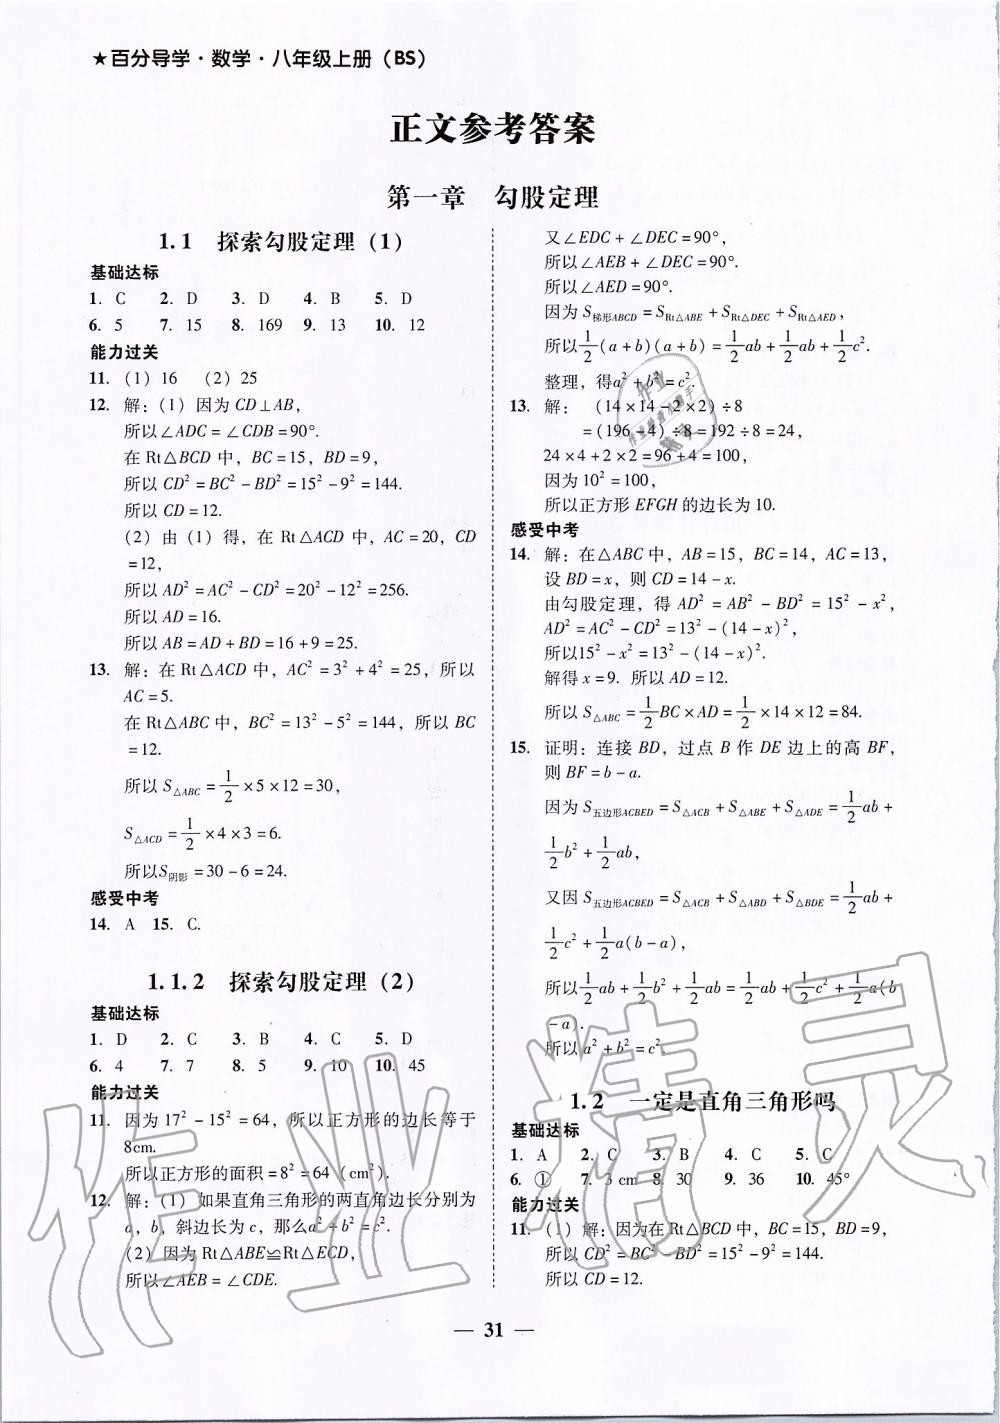 ★百分导学·数学·八年级上册（BS）
正文参考答案
第一章　勾股定理
1.1　探索勾股定理（1）
基础达标
1. C　2. D　3. D　4. B　5. D
6. 5　7. 15　8. 169　9. 13　10. 12
能力过关
11.（1）16　（2）25
12. 解：（1）因为 CD⊥AB，
所以∠ADC=∠CDB=90°.
在 Rt△BCD 中，BC=15，BD=9，
所以 CD²=BC²-BD²=15²-9²=144.
所以 CD=12.
（2）由（1）得，在 Rt△ACD 中，AC=20，CD
=12，
所以 AD²=AC²-CD²=20²-12²=256.
所以 AD=16.
所以 AB=AD+BD=16+9=25.
13. 解：在 Rt△ACD 中，AC²=3²+4²=25，所以
AC=5.
在 Rt△ABC 中，BC²=13²-5²=144，所以 BC
=12.
所以 S△ABC=1/2×5×12=30，
S△ACD=1/2×4×3=6.
所以S阴影=30-6=24.
感受中考
14. A　15. C.
1.1.2　探索勾股定理（2）
基础达标
1. D　2. C　3. B　4. C　5. D
6. 4　7. 7　8. 5　9. 10　10. 45
能力过关
11. 因为 17²-15²=64，所以正方形的边长等于
8cm.
所以正方形的面积=8²=64（cm²）.
12. 解：（1）如果直角三角形的两直角边长分别为
a，b，斜边长为 c，那么a²+b²=c².
（2）因为 Rt△ABE≌Rt△ECD，
所以∠AEB=∠CDE.
又∠EDC+∠DEC=90°，
所以∠AEB+∠DEC=90°.
所以∠AED=90°.
因为 S梯形ABCD=SRt△ABE+SRt△DEC+SRt△AED，
所以1/2(a+b)(a+b)=1/2ab+1/2ab+1/2c².
整理，得a²+b²=c².
13. 解：（14×14-2×2）÷8
=（196-4）÷8=192÷8=24，
24×4+2×2=96+4=100，
因为 10²=100，
所以正方形 EFGH 的边长为 10.
感受中考
14. 解：在△ABC 中，AB=15，BC=14，AC=13，
设 BD=x，则 CD=14-x.
由勾股定理，得 AD²=AB²-BD²=15²-x²，
AD²=AC²-CD²=13²-(14-x)²，
所以15²-x²=13²-(14-x)².
解得 x=9. 所以 AD=12.
所以 S△ABC=1/2BC×AD=1/2×14×12=84.
15. 证明：连接 BD，过点 B 作 DE 边上的高 BF，
则 BF=b-a.
因为 S五边形ACBED=S△ACB+S△ABE+S△ADE=1/2ab+
1/2b²+1/2ab，
又因 S五边形ACBED=S△ACB+S△ABD+S△BDE=1/2ab+
1/2c²+1/2a(b-a)，
所以1/2ab+1/2b²+1/2ab=1/2ab+1/2c²+1/2a(b
-a).
所以 a²+b²=c².
1.2　一定是直角三角形吗
基础达标
1. A　2. C　3. B　4. C　5. C
6. ①　7. 3 cm　8. 30　9. 36　10. 45°
能力过关
11.（1）解：因为在 Rt△BCD 中，BC=15，BD=9，
所以 CD²=BC²-BD²=15²-9²=144.
所以 CD=12.
— 31 —
作业精灵